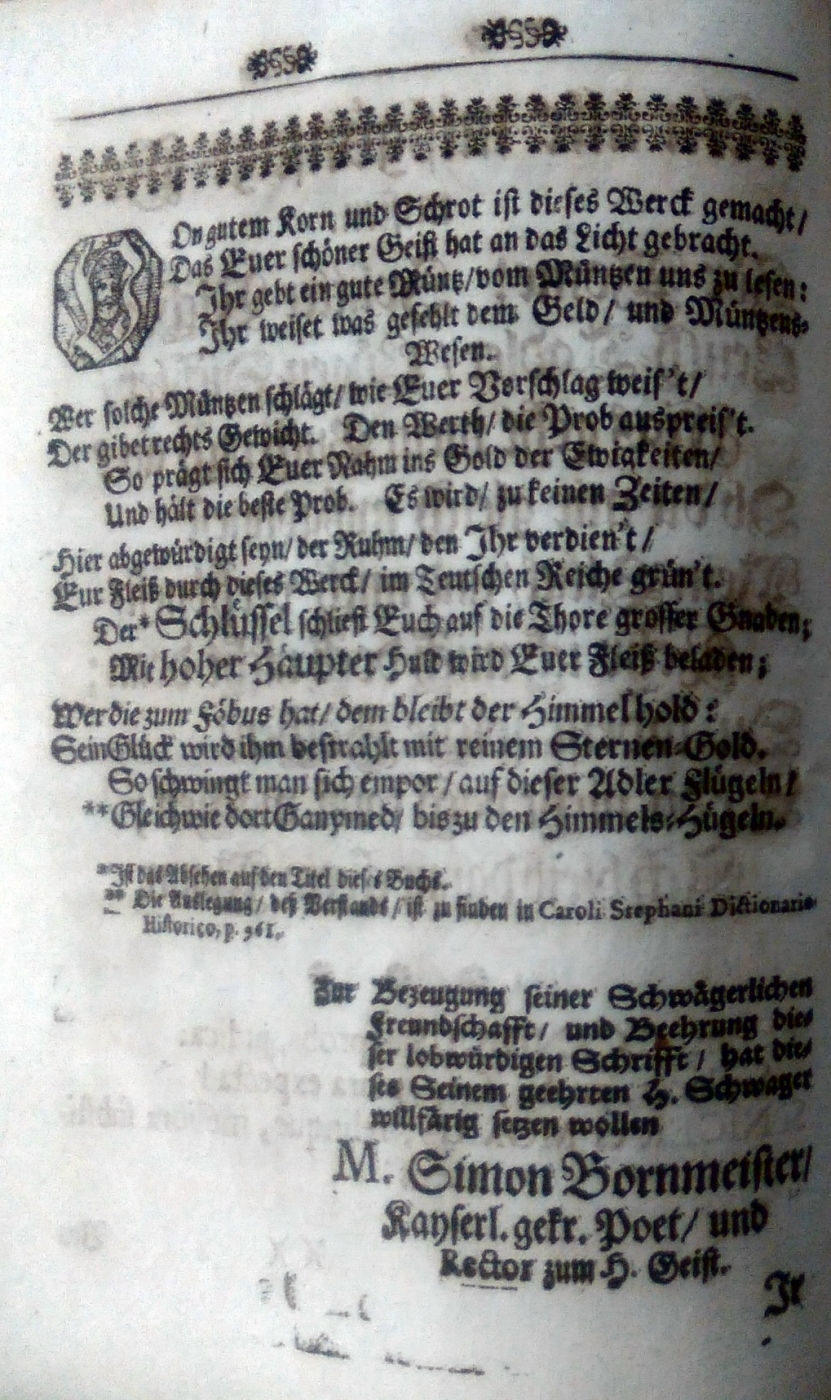 On gutem Korn und Schrot ist dieses Werck gemacht/
Das Euer schöner Geist hat an das Licht gebracht.
Ihr gebt ein gute Müntz/ vom Müntzen uns zu lesen:
Ihr weiset was gefehlt dem Geld/ und Müntzens-
Wesen.
Wer solche Müntzen schlägt/ wie Euer Vorschlag weis't/
Der gibet rechts Gewicht. Den Werth/ die Prob auspreis't.
So prägt sich Euer Nahm ins Gold der Ewigkeiten/
Und hält die beste Prob. Es wird/ zu keinen Zeiten/
Hier abgewürdigt seyn/ der Ruhm/ den Ihr verdien't/
Eur Fleiß durch dieses Werck/ im Teutschen Reiche grün't.
Der* Schlüssel schliest Euch auf die Thore grosser Gnaden;
Mit hoher Häupter Huld wird Euer Fleiß beladen;
Wer die zum Föbus hat/ dem bleibt der Himmel hold:
Sein Glück wird ihm bestrahlt mit reinem Sternen-Gold.
So schwingt man sich empor/ auf dieser Adler Flügeln/
**Gleichwie dort Ganymed/ bis zu den Himmels-Hügeln.
*Ist das Absehen auf den Titel dieses Buchs.
** Die Auslegung/ deß Verstands/ ist zu finden in Caroli Stephani Dictionario
Historico, p. 961.
Zur Bezeugung seiner Schwägerlichen
Freundschafft/ und Beehrung die-
ser lobwürdigen Schrifft/ hat die-
ses Seinem geehrten H. Schwager
willfärig setzen wollen
M. Simon Bornmeister/
Kayserl. gekr. Poet/ und
Rector zum H. Geist.